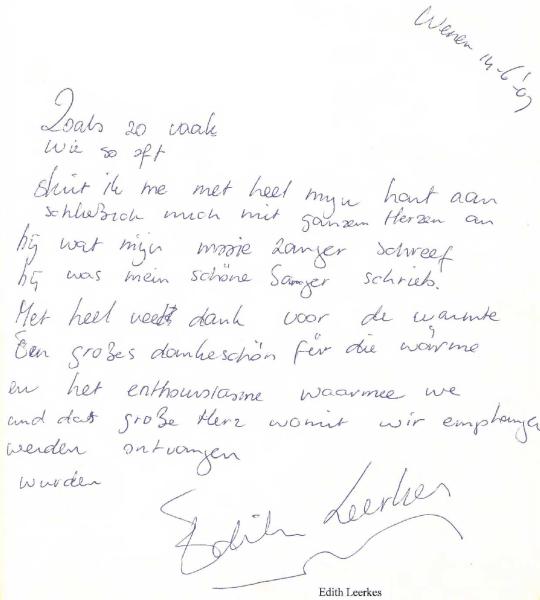 Wenen 14-6-'09
Zoals zo vaak
Wie so oft
sluit ik me met heel mijn hart aan
schließ ich mich mit ganzem Herzen an
bij wat mijn mooie zanger schreef
bij was mein schöne Sänger schrieb.
Met heel veel dank voor de warmte
Ein großes dankeschön für die wärme
en het enthousiasme waarmee we
und das große Herz womit wir empfangen
werden ontvangen
wurden
Edith Leerkes
Edith Leerkes